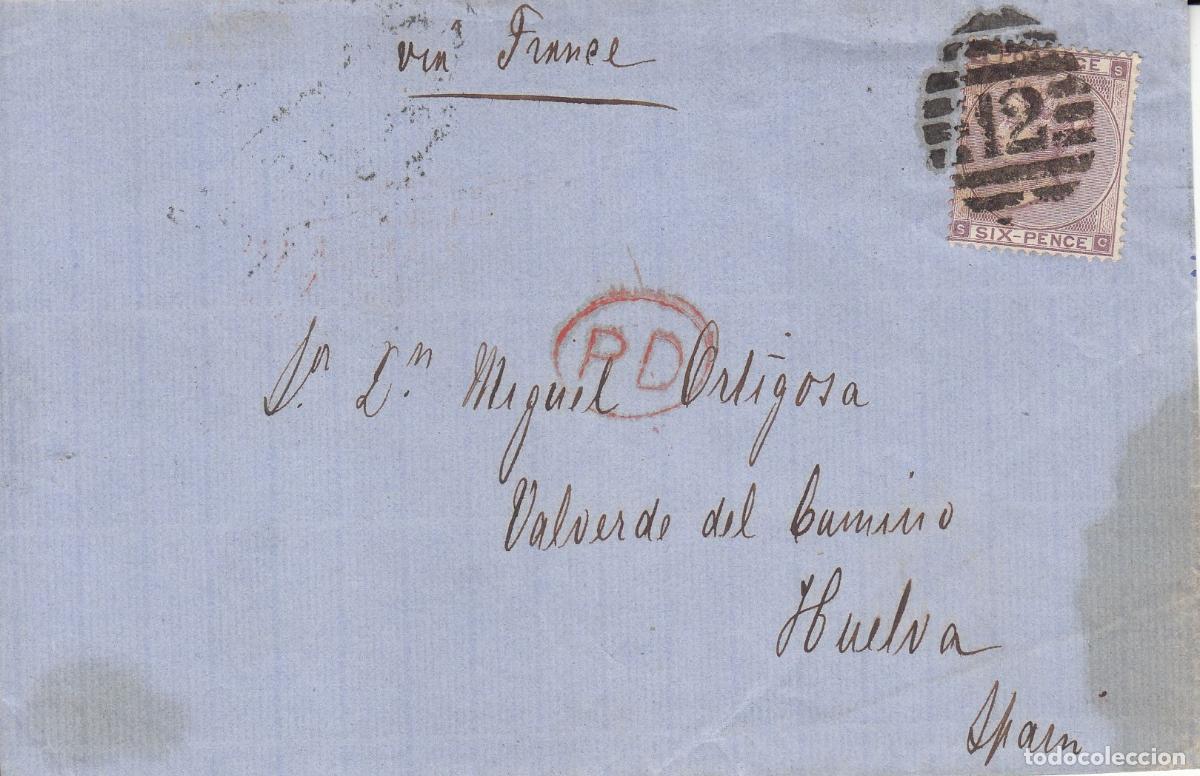 via France
CE S
12
S SIX-PENCE C
PD
Sr. Dn. Miguel Ortigosa
Valverde del Camino
Huelva
Spain
todocoleccion